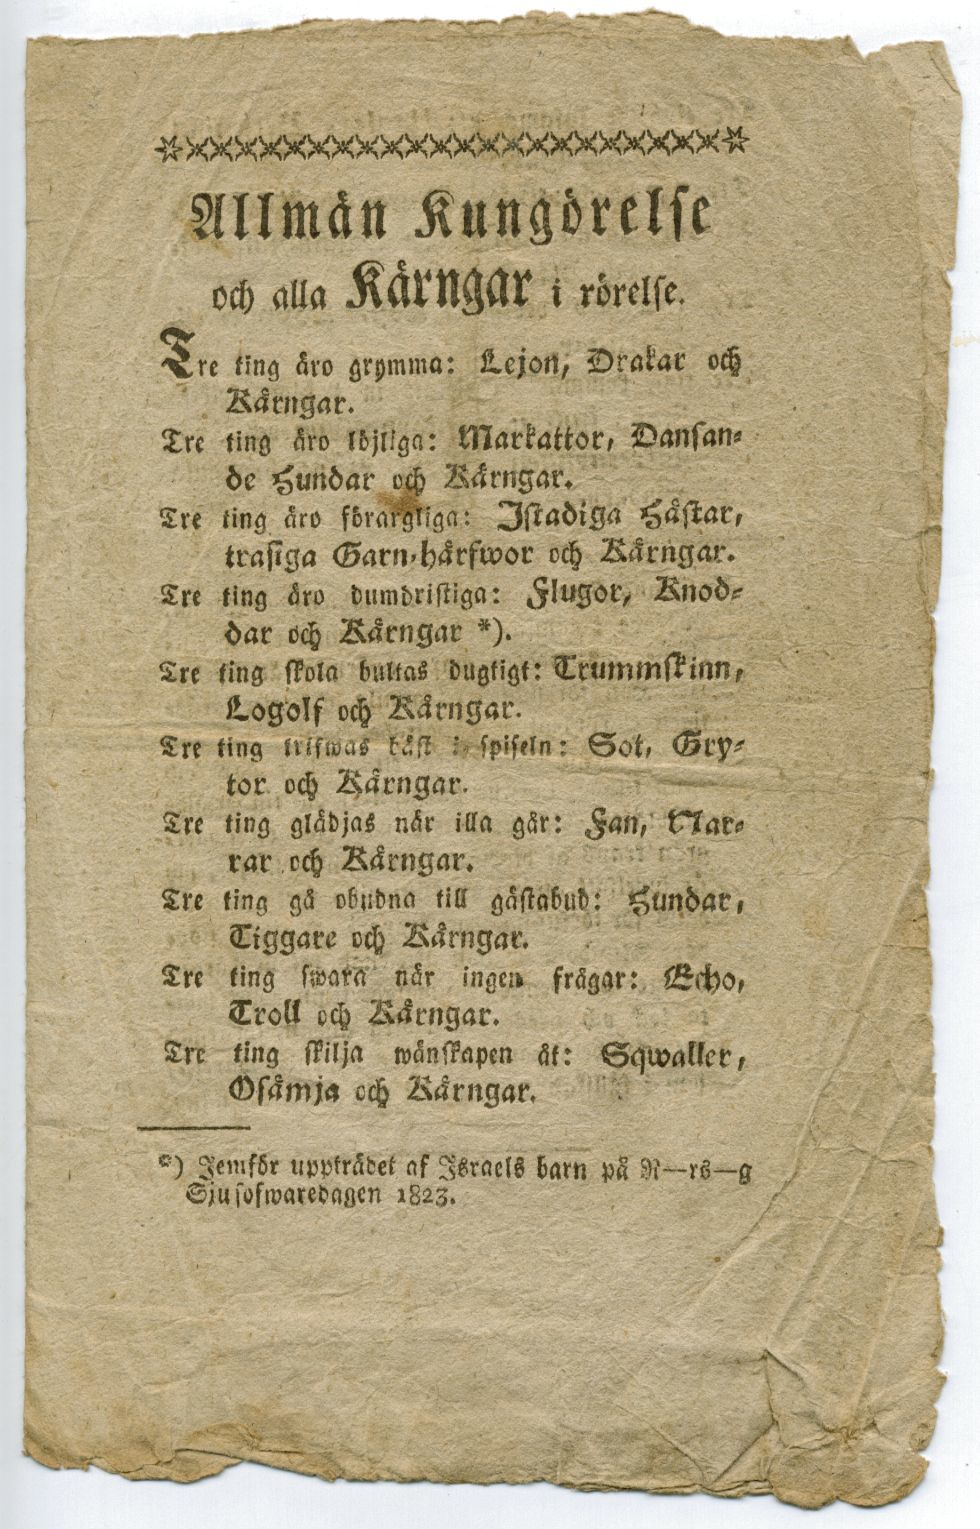 Allmän Kungörelse
och alla Kärngar i rörelse.
Tre ting äro grymma: Lejon, Drakar och
Kärngar.
Tre ting äro löjliga: Markattor, Dansan-
de Hundar och Kärngar.
Tre ting äro förargliga: Istadiga Hästar,
trasiga Garn-härfwor och Kärngar.
Tre ting äro dumdristiga: Flugor, Knod-
dar och Kärngar *).
Tre ting skola bultas dugtigt: Trummskinn,
Logolf och Kärngar.
Tre ting trifwas bäst i spiseln: Sot, Gry-
tor och Kärngar.
Tre ting glädjas när illa går: Fan, Nar-
rar och Kärngar.
Tre ting gå obudna till gästabud: Hundar,
Tiggare och Kärngar.
Tre ting swara när ingen frågar: Echo,
Troll och Kärngar.
Tre ting skilja wänskapen åt: Sqwaller,
Osämja och Kärngar.
*) Jemför uppträdet af Israels barn på R—rs—g
Sjusofwaredagen 1823.